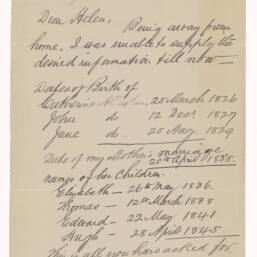 Dear Helen,
Being away from
home, I was unable to supply the
desired information till now —
Dates of Birth of
Catherine 25 March 1826
John do 12 Decr 1827
Jane do. 25 Aug. 1829
Date of my Mother's marriage
20th April 1835.
Names of her Children.
Elizabeth — 26th May 1836.
Thomas — 12th March 1838
Edward — 22 May 1841
Hugh — 25 April 1845
This is all you have asked for